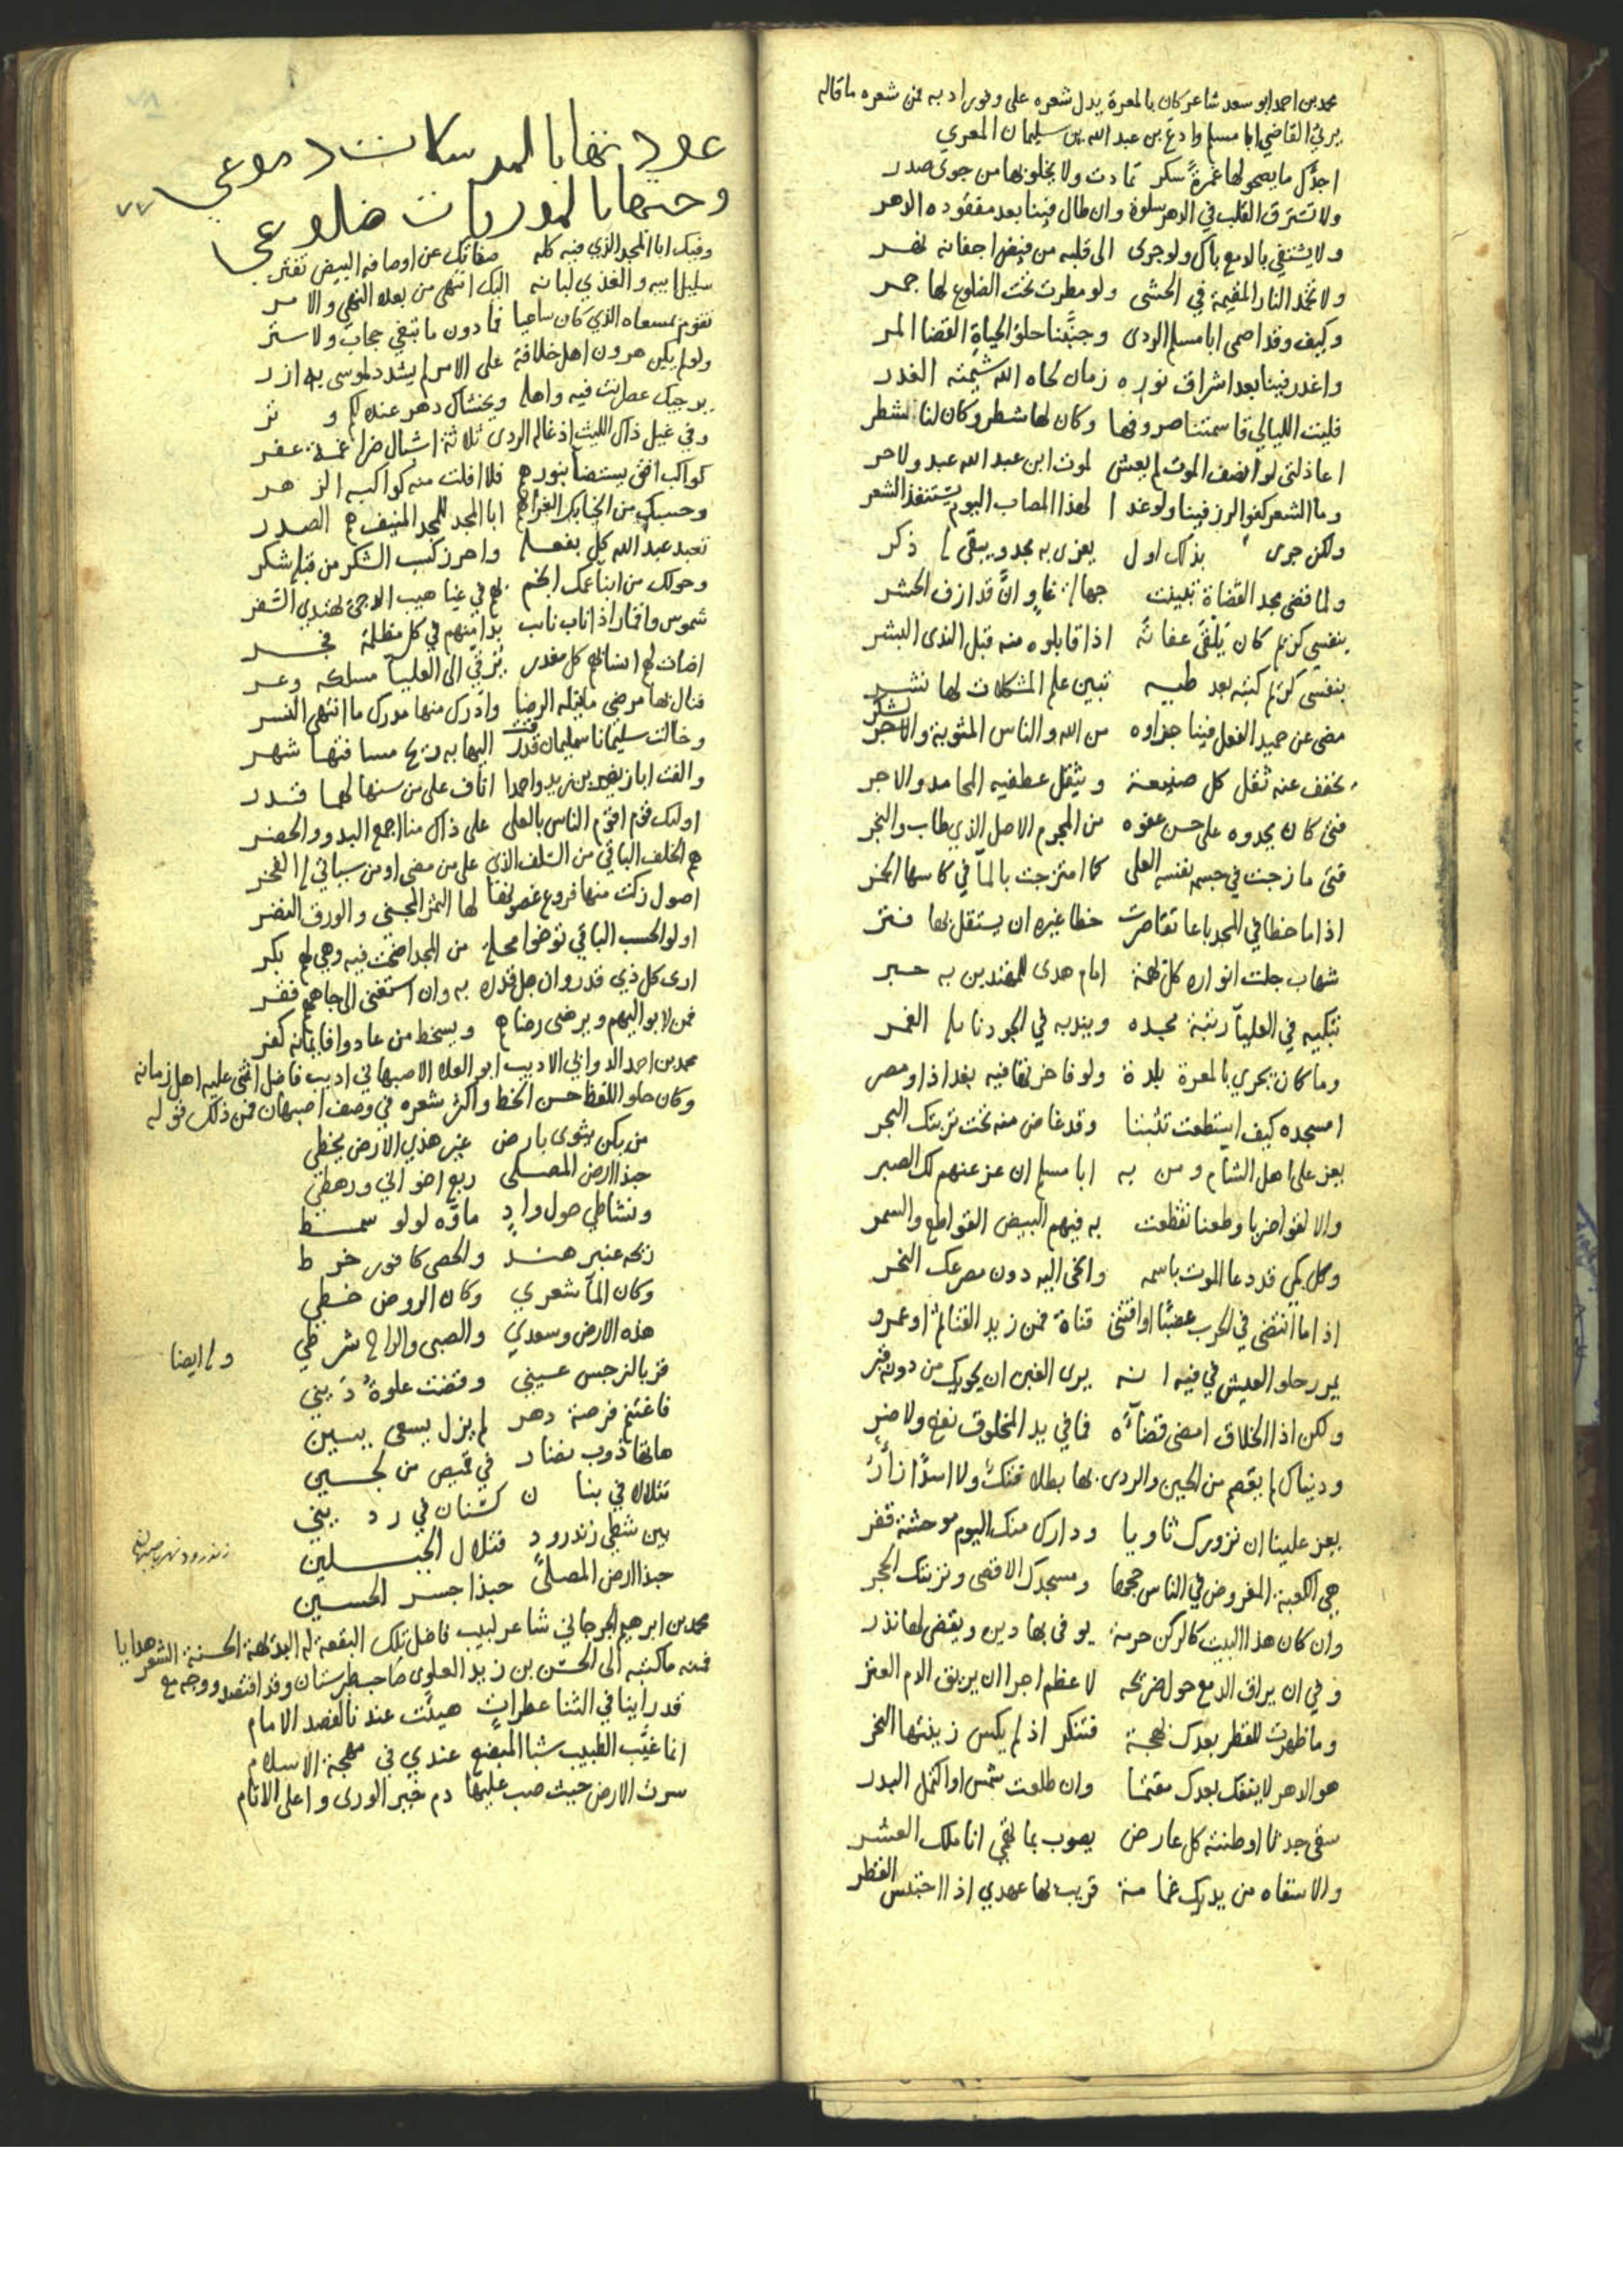 محمد بن احمد ابو سعد شاعر كان بالمعرة يدل شعره على وفور ادبه فمن شعره ما قاله
يرثي القاضي ابا مسلم وادع بن عبد الله بن سليمان المعري
اجدك ما يصحو لها غمرة سكر تمادت ولا يخلو بها من جوى صدر
ولا تشرق القلب في الدهر سلوة وان طال فينا بعد مفقوده الدهر
ولا يشتفي بالدمع باك ولو جرى الى قلبه من فيض اجفانه نهر
ولا تخمد النار المقيمة في الحشى ولو مطرت تحت الضلوع لها جمر
وكيف وقد اصمى ابا مسلم الردى وجنبنا حلو الحياة القضا المر
واغدر فينا بعد اشراق نوره زمان لحاه الله شيمته الغدر
فليت الليالي قاسمتنا صروفها وكان لها شطر وكان لنا شطر
اعاذلتي لو انصف الموت لم يعش لموت ابن عبد الله عبد ولا حر
وما الشعر كفو الرز فينا ولو غدا لهذا المصاب اليوم يستنفذ الشعر
ولكن جرى بذاك اول يعزى به مجد ويبقى له ذكر
ولما قضى مجد القضاة تيقنت وان قد ازف الحشر
بنفسي كريم كان يلقى عفاته اذا قابلوه منه قبل الندى البشر
بنفسي كريم كتبه بعد طيه تبين علم المشكلات لها نشر
مضى عن حميد الفعل فينا جزاوه من الله والناس المثوبة والشكر
يخفف عنه ثقل كل صنيعة ويثقل عطفيه المحامد والاجر
فتى كان يحدوه على حسن عفوه من المجرم الاصل الذي طاب والنجر
فتى مازجت في جسمه نفسه العلى كما امتزجت بالمآ في كاسها الخمر
اذا ما خطا في المجد باعا تقاصرت خطا غيره ان يستقل بها فتر
شهاب جلت انواره كل بهمة امام هدى للمهتدين به حبر
تبكيه في العليآ رتبة مجده ويندبه في الجود نايله الغمر
وما كان يحري بالمعرة بلدة ولو فاخرتها فيه بغداد او مصر
امسجده كيف استطعت تثبتا وقد غاض منه تحت تربتك البحر
يعز على اهل الشام ومن به ابا مسلم ان عز عنهم لك الصبر
والا لقوا ضربا وطعنا تقطعت به فيهم البيض القواطع والسمر
وكل كمي قد دعا الموت باسمه وانحى اليه دون مصرعك النحر
اذا ما انتضى في الحرب عضبا او اقتنى قناة فمن زيد القنا لم او عمرو
يمر رحلو العيش في فيه انه يرى الغبن ان يحويك من دونه قبر
ولكن اذا الخلاق امضى قضآءه فما في يد المخلوق نفع ولا ضر
ودنياك لم يعصم من الحين والردى بها بطلا فتك ولا اسدا زأر
يعز علينا ان نزورك ثاويا ودارك منك اليوم موحشة قفر
هي الكعبة المفروض في الناس حجها ومسجدك الاقصى وتربتك الحجر
وان كان هذا البيت كالركن حرمة يوفى بها دين ويقضى لها نذر
وفي ان يراق الدمع حول ضريحه لا عظم اجرا ان يريق الدم العتر
وما ظهرت للفطر بعدك بهجة فتنكر اذ لم يكس زينتها النحر
هو الدهر لا ينفك بعدك مقتما وان طلعت شمس او اكتمل البدر
سقى جدثا اوطنته كل عارض يصوب بما تهمي اناملك العشر
والا سقاه من يديك غمامة قريب بها عهدي اذا احتبس القطر
عودتها بالمرسلات دموعي
وحميتها بالموريات ضلوعي
٧٧
وفيك ابا المجد الذي فيه كله صفاتك عن اوصافه البيض تفتر
سليل ابيه والغذي لبانه اليك انتهى من بعده النهي والامر
تقوم بمسعاه الذي كان ساعيا فما دون ما تبغي حجاب ولا ستر
ولو لم يكن هرون اهل خلافة على الامر لم يشدد لموسى به ازر
يرجيك عصر انت فيه واهله ويخشاك دهر عنده لكم وتر
وفي غيل ذاك الليث اذ غاله الردى ثلاثة اشبال ضراغمة عفر
كواكب افق يستضأ بنورهم فلا افلت منه كواكبه الزهر
وحسبك من انجابك الغر انهم ابا المجد للمجد المنيف هم الصدر
تعبد عبد الله كل بفعله واحرز كسب الشكر من قبله شكر
وحولك من ابنا عمك انجم بهم في غياهيب الدجى يهتدي السفر
شموس واقمار اذا ناب نايب بدا منهم في كل مظلمة فجر
اضات لهم انسابهم كل مغدر ترقي الى العليآ مسلكه وعر
فنال بها مرضي ما يفتله الرضا وادرك منها مدرك ما انتهى النسر
وخالت سليمانا سليمان قدرت اليها به ريح مسافتها شهر
والفت ابا زيد بن زيد واحدا اناف على من سنها لهما قدر
اوليك قوم اقوم الناس بالعلى على ذاك منا اجمع البدو والحضر
هم الخلف الباقي من السلف الذي على من مضى او من سياتي له الفخر
اصول زكت منها فروع غصونها لها الثمر المجني والورق النضر
اولو الحسب الباقي توخوا محلة من المجد اضحت فيه وهي لهم بكر
ارى كل ذي قدر وان جل قدره به وان استغنى الى جاههم فقر
فمن لا يواليهم ويرضى رضاهم ويسخط من عادوا فايمانه كفر
محمد بن احمد الدواني الاديب ابو العلا الاصبهاني اديب فاضل اثنى عليه اهل زمانه
وكان حلو اللفظ حسن الخط واكثر شعره في وصف اصبهان فمن ذلك قوله
من يكن يثوى بارض غير هذي الارض يخطي
حبذا ارض المصلى ربع اخواني ورهطي
ونشاطي حول واد ماؤه لولو سمط
ريحه عنبر هند والحصى كافور خرط
وكان المآ شعري وكان الروض خطي
هذه الارض وسعدي والصبى والراح شرطي
وله ايضا
قر بالنرجس عيني وقضت علوة ديني
فاغتنم فرصة دهر لم يزل يسعى ببين
هاتها ذوب نضار في قميص من لجين
تتلالا في بنان كسنان في رديني
بين شطي زندرود فتلال الجبلين
زندرود نهر باصبهان
حبذا ارض المصلى حبذا جسر الحسين
محمد بن ابرهيم الجرجاني شاعر لبيب فاضل تلك البقعة له البديهة الحسنة الشعر هدايا
فمنه ما كتبه الى الحسن بن زيد العلوي صاحب طبرستان وقد افتصد ووجه مع
قد راينا في الثنا عطرات هيئت عندنا لفصد الامام
انما غيب الطبيب شبا المبضع عندي في مهجة الاسلام
سرت الارض حيث صب عليها دم خير الورى واعلى الانام